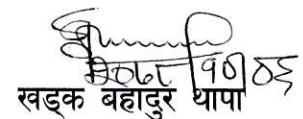 २०७८।१०।०६
खड्क बहादुर थापा